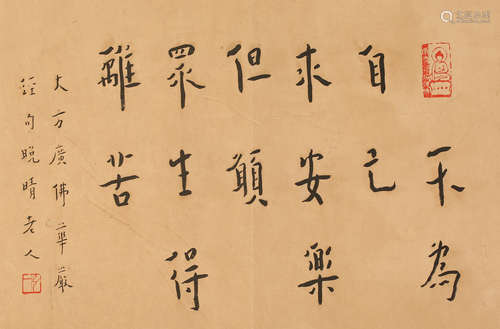 不為
自己
求安樂
但願
眾生得
離苦
大方廣佛華嚴
經句晚晴老人